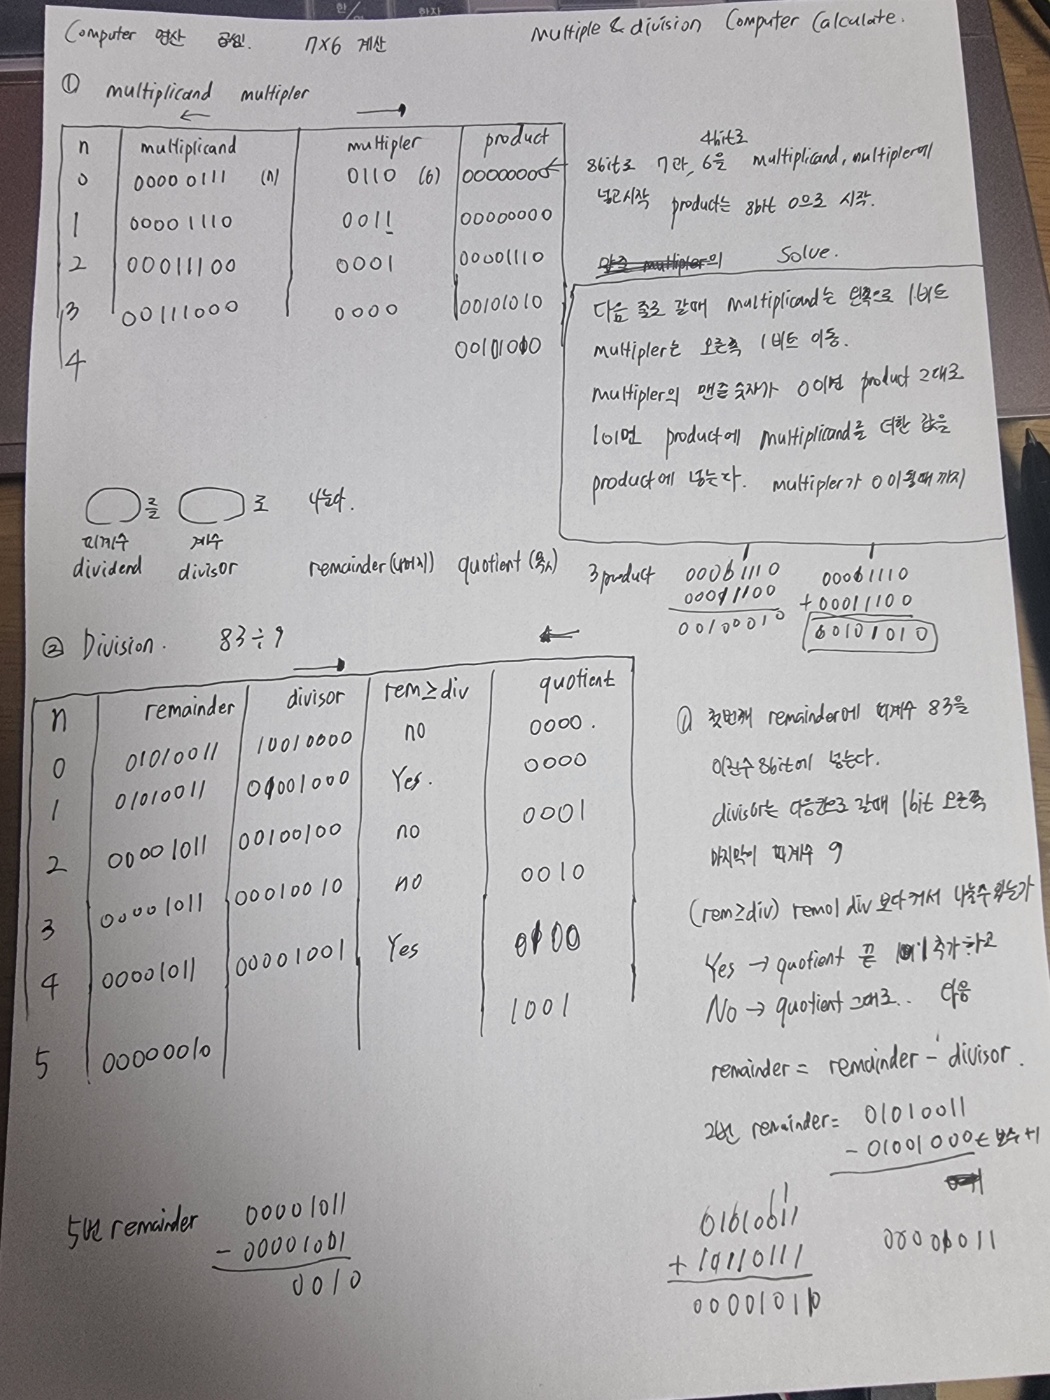 Computer 연산 공부. 7×6 계산
Multiple & division Computer Calculate.
① multiplicand multipler
← →
n multiplicand multipler product
0 0000 0111 (7) 0110 (6) 00000000 ←
1 00001110 0011 00000000
2 00011100 0001 00001110
3 00111000 0000 00101010
4 00101010
4bit로
8bit로 7과, 6을 multiplicand, multipler에
넣고시작 product는 8bit 0으로 시작.
Solve.
다음 줄로 갈때 multiplicand는 왼쪽으로 1비트
multipler는 오른쪽 1비트 이동.
multipler의 맨끝 숫자가 0이면 product 그대로
1이면 product에 multiplicand를 더한 값을
product에 넣는다. multipler가 0이될때 까지
3 product 00001110 00001110
00011100 + 00011100
00100010 00101010
를 로 나눈다.
피제수 제수
dividend divisor remainder (나머지) quotient (몫)
② Division. 83÷9
→ ←
n remainder divisor rem≥div quotient
0 01010011 10010000 no 0000.
1 01010011 01001000 Yes. 0000
2 00001011 00100100 no 0001
3 00001011 00010010 no 0010
4 00001011 00001001 Yes 0100
5 00000010 1001
① 첫번째 remainder에 피제수 83을
이진수 8bit에 넣는다.
divisor는 다음칸으로 갈때 1bit 오른쪽
마지막이 피제수 9
(rem≥div) rem이 div 보다 커서 나눌수 있는가
Yes → quotient 끝 1 추가하고
No → quotient 그대로.. 다음
remainder = remainder - divisor.
2번 remainder = 01010011
- 01001000 ← 보수+1
01010011
+ 10110111
00001011
00000011
5번 remainder 00001011
- 00001001
0010